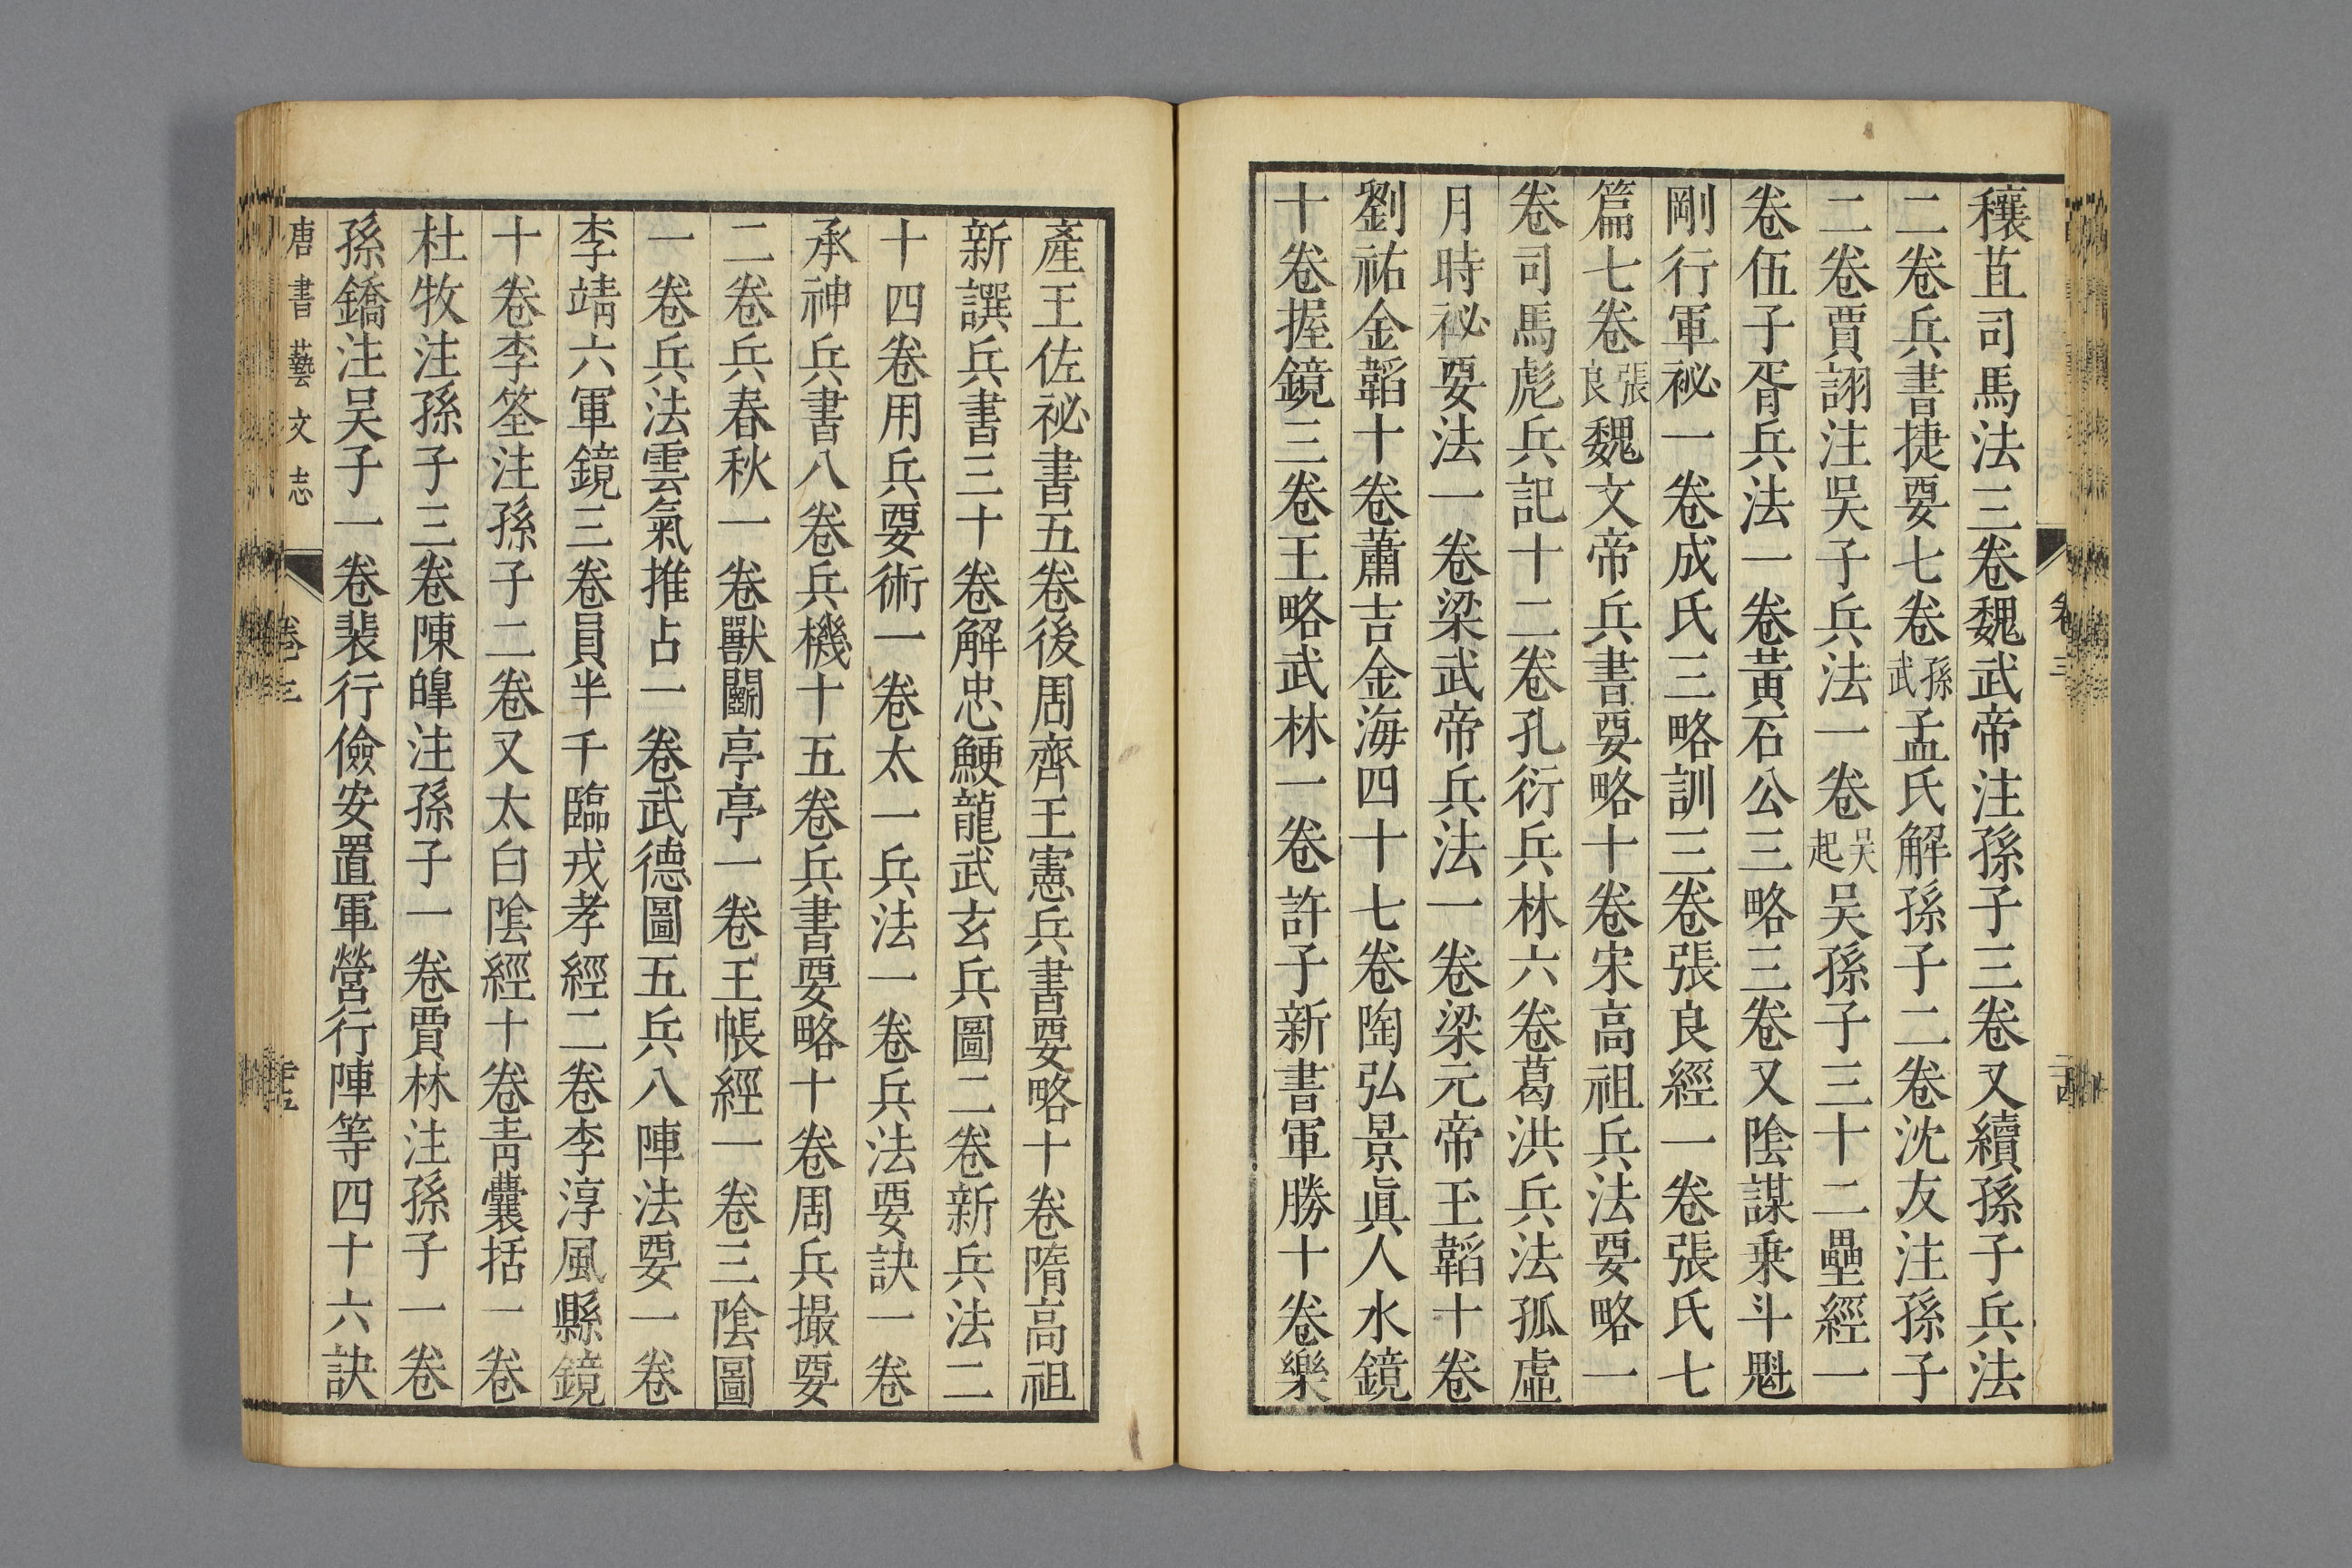 穰苴司馬法三卷魏武帝注孫子三卷又續孫子兵法
二卷兵書捷要七卷孫武孟氏解孫子二卷沈友注孫子
二卷賈詡注吳子兵法一卷吳起吳孫子三十二壘經一
卷伍子胥兵法一卷黃石公三略三卷又陰謀乘斗魁
剛行軍祕一卷成氏三略訓三卷張良經一卷張氏七
篇七卷張良魏文帝兵書要略十卷宋高祖兵法要略一
卷司馬彪兵記十二卷孔衍兵林六卷葛洪兵法孤虛
月時祕要法一卷梁武帝兵法一卷梁元帝玉韜十卷
劉祐金韜十卷蕭吉金海四十七卷陶弘景真人水鏡
十卷握鏡三卷王略武林一卷許子新書軍勝十卷樂
產王佐祕書五卷後周齊王憲兵書要略十卷隋高祖
新譔兵書三十卷解忠鯁龍武玄兵圖二卷新兵法二
十四卷用兵要術一卷太一兵法一卷兵法要訣一卷
承神兵書八卷兵機十五卷兵書要略十卷周兵撮要
二卷兵春秋一卷獸鬬亭亭一卷王帳經一卷三陰圖
一卷兵法雲氣推占一卷武德圖五兵八陣法要一卷
李靖六軍鏡三卷員半千臨戎孝經二卷李淳風縣鏡
十卷李筌注孫子二卷又太白陰經十卷青囊括一卷
杜牧注孫子三卷陳皥注孫子一卷賈林注孫子一卷
孫鎬注吳子一卷裴行儉安置軍營行陣等四十六訣
唐書藝文志 卷三